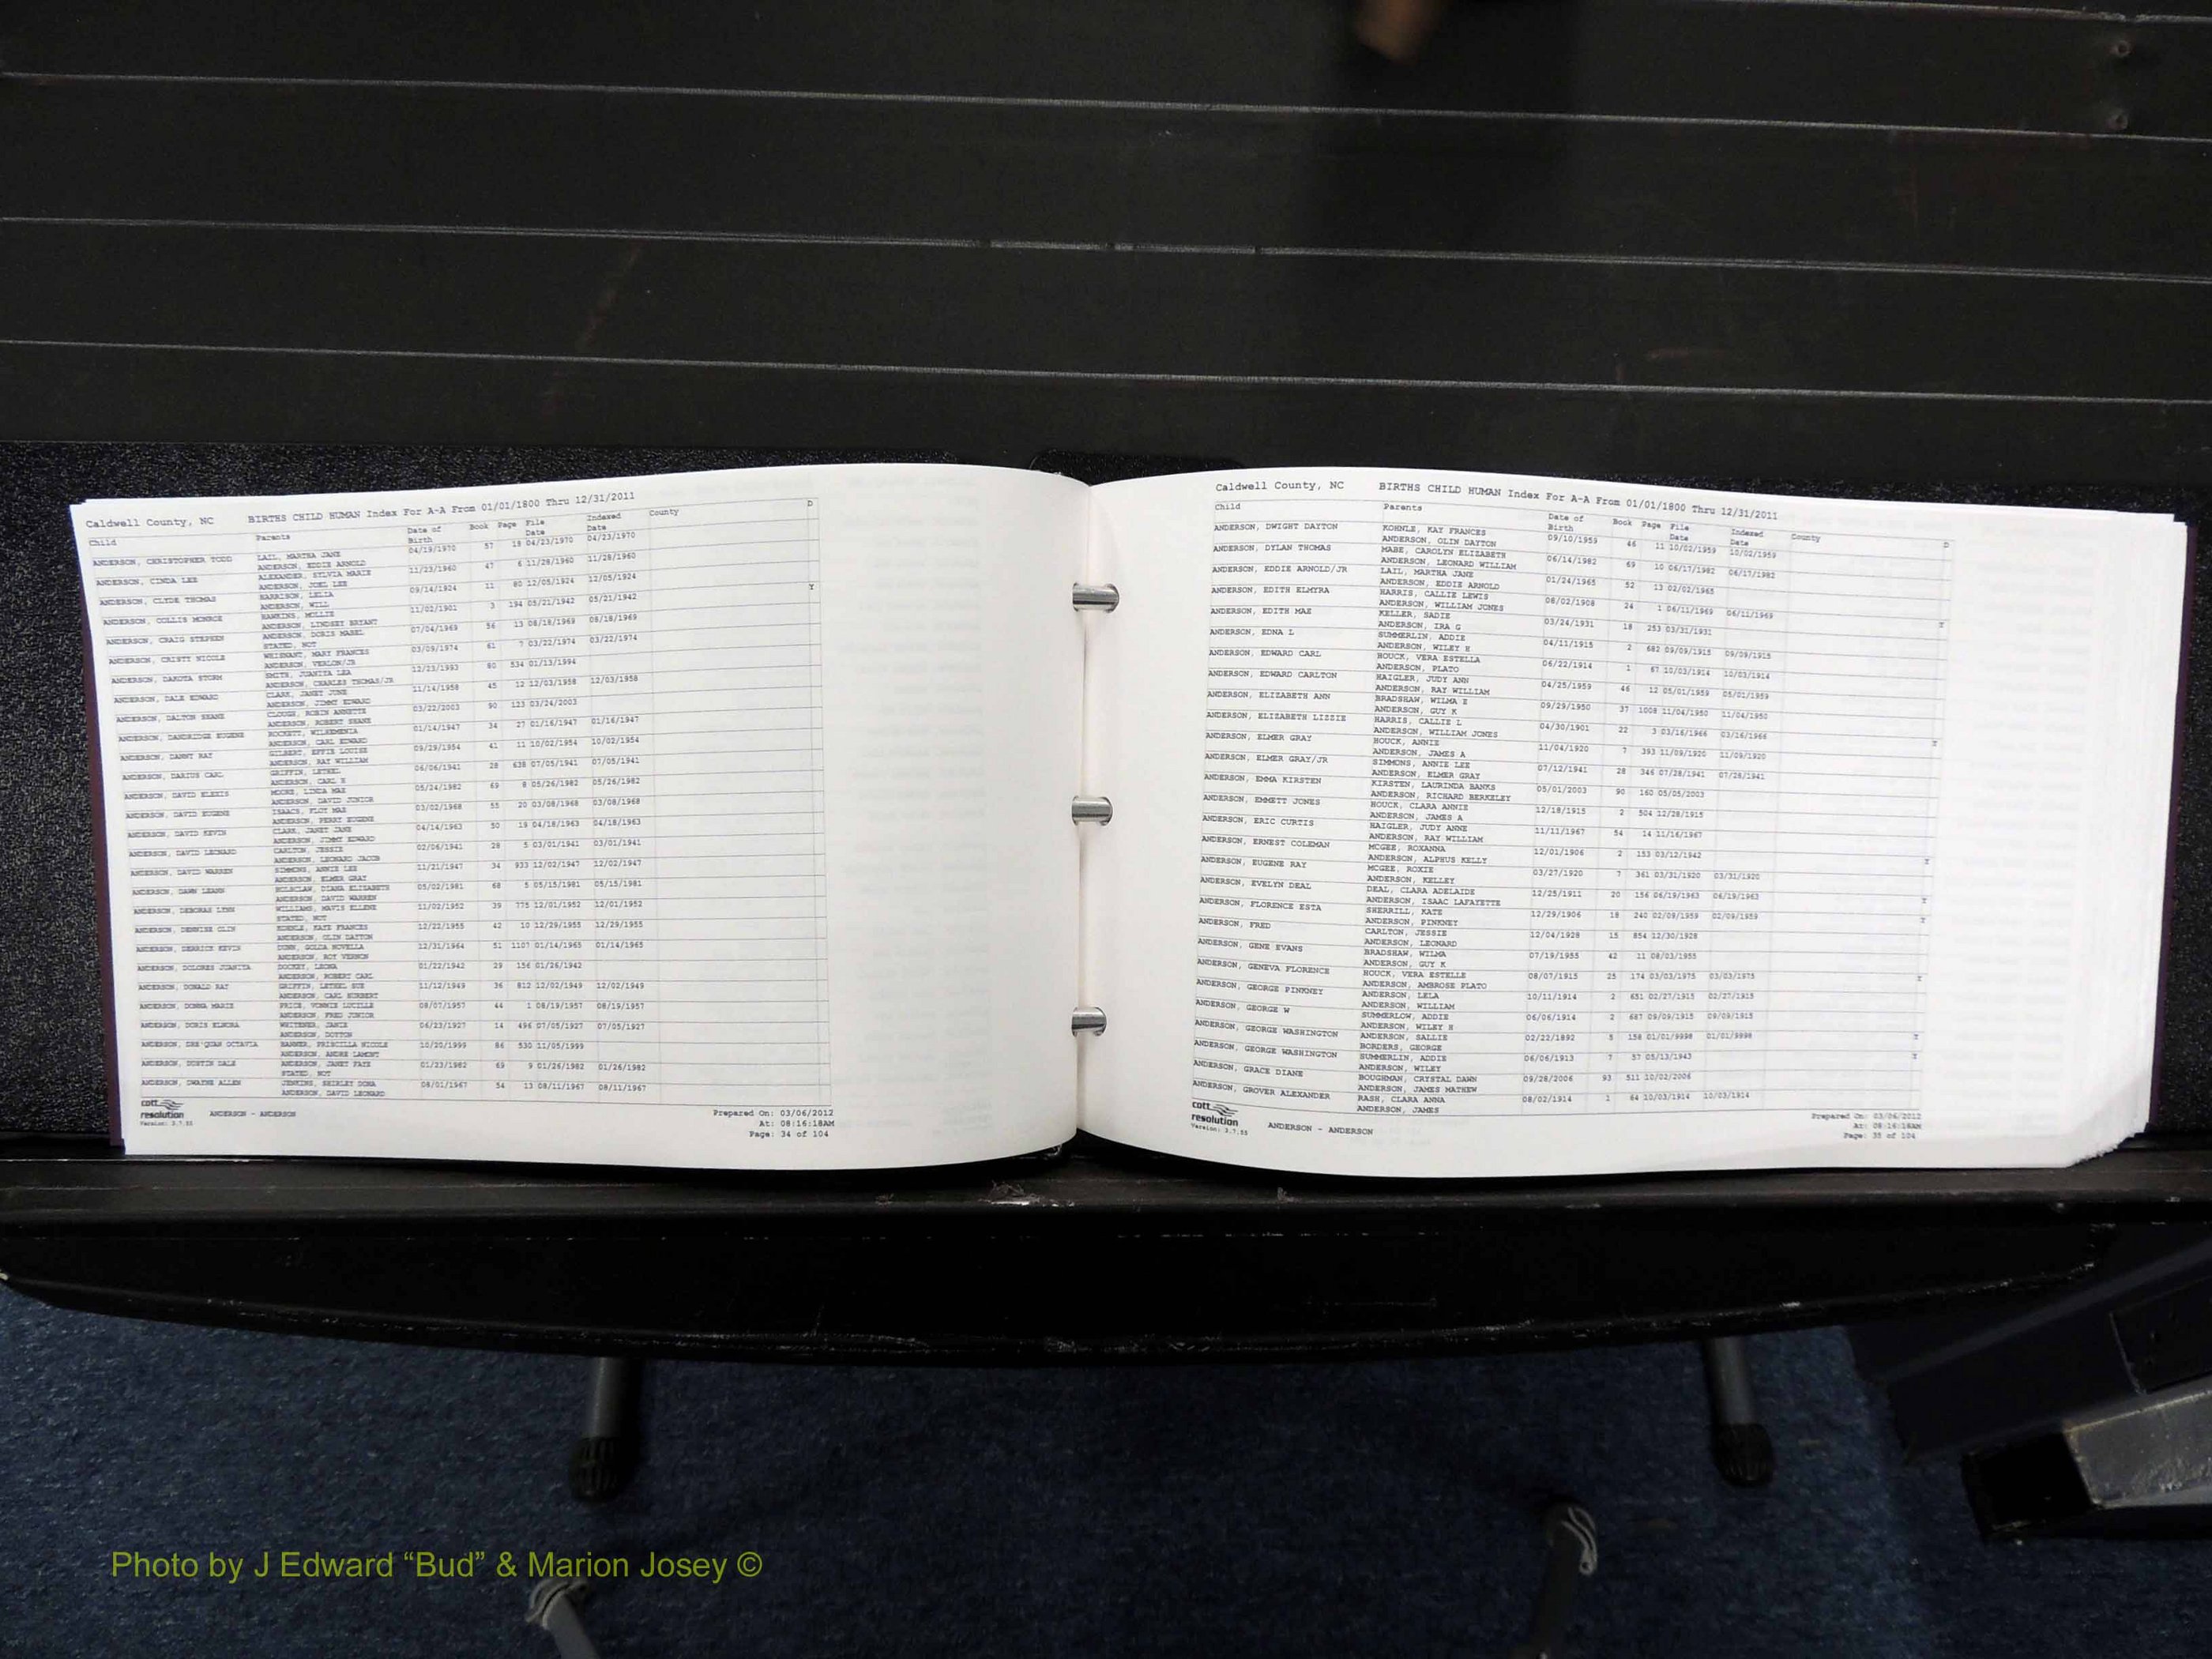 Caldwell County, NC BIRTHS CHILD HUMAN Index For A-A From 01/01/1800 Thru 12/31/2011
Child Parents Date of Birth Book Page File Date Indexed Date County D
ANDERSON, CHRISTOPHER TODD LAIL, MARTHA JANE 04/19/1970 57 18 04/23/1970 04/23/1970
ANDERSON, EDDIE ARNOLD
ANDERSON, CINDA LEE ALEXANDER, SYLVIA MARIE 11/23/1960 47 6 11/28/1960 11/28/1960
ANDERSON, JOEL LEE
ANDERSON, CLYDE THOMAS HARRISON, LELIA 09/14/1924 11 80 12/05/1924 12/05/1924 Y
ANDERSON, WILL
ANDERSON, COLLIS MONROE HAWKINS, MOLLIE 11/02/1901 3 194 05/21/1942 05/21/1942
ANDERSON, LINDSEY BRYANT
ANDERSON, CRAIG STEPHEN ANDERSON, DORIS MABEL 07/04/1969 56 13 08/18/1969 08/18/1969
STATED, NOT
ANDERSON, CRISTY NICOLE WHISNANT, MARY FRANCES 03/09/1974 61 7 03/22/1974 03/22/1974
ANDERSON, VERLON/JR
ANDERSON, DAKOTA STORM SMITH, JUANITA LEA 12/23/1993 80 534 01/13/1994
ANDERSON, CHARLES THOMAS/JR
ANDERSON, DALE EDWARD CLARK, JANET JUNE 11/14/1958 45 12 12/03/1958 12/03/1958
ANDERSON, JIMMY EDWARD
ANDERSON, DALTON SHANE CLOUGH, ROBIN ANNETTE 03/22/2003 90 123 03/24/2003
ANDERSON, ROBERT SHANE
ANDERSON, DANDRIDGE EUGENE ROCKETT, WILHEMENIA 01/14/1947 34 27 01/16/1947 01/16/1947
ANDERSON, CARL EDWARD
ANDERSON, DANNY RAY GILBERT, EFFIE LOUISE 09/29/1954 41 11 10/02/1954 10/02/1954
ANDERSON, RAY WILLIAM
ANDERSON, DARIUS CARL GRIFFIN, LETHEL 06/06/1941 28 638 07/05/1941 07/05/1941
ANDERSON, CARL H
ANDERSON, DAVID ELEXIS MOORE, LINDA MAE 05/24/1982 69 8 05/26/1982 05/26/1982
ANDERSON, DAVID JUNIOR
ANDERSON, DAVID EUGENE ISAACS, FLOY MAE 03/02/1968 55 20 03/08/1968 03/08/1968
ANDERSON, PERRY EUGENE
ANDERSON, DAVID KEVIN CLARK, JANET JANE 04/14/1963 50 19 04/18/1963 04/18/1963
ANDERSON, JIMMY EDWARD
ANDERSON, DAVID LEONARD CARLTON, JESSIE 02/06/1941 28 5 03/01/1941 03/01/1941
ANDERSON, LEONARD JACOB
ANDERSON, DAVID WARREN SIMMONS, ANNIE LEE 11/21/1947 34 933 12/02/1947 12/02/1947
ANDERSON, ELMER GRAY
ANDERSON, DAWN LEANN HOLSCLAW, DIANA ELIZABETH 05/02/1981 68 5 05/15/1981 05/15/1981
ANDERSON, DAVID WARREN
ANDERSON, DEBORAH LYNN WILLIAMS, MAVIS ELLENE 11/02/1952 39 775 12/01/1952 12/01/1952
STATED, NOT
ANDERSON, DENNISE OLIN KOHNLE, KATE FRANCES 12/22/1955 42 10 12/29/1955 12/29/1955
ANDERSON, OLIN DAYTON
ANDERSON, DERRICK KEVIN DUNN, GOLDA NOVELLA 12/31/1964 51 1107 01/14/1965 01/14/1965
ANDERSON, ROY VERNON
ANDERSON, DOLORES JUANITA DOCKEY, LEONA 01/22/1942 29 156 01/26/1942
ANDERSON, ROBERT CARL
ANDERSON, DONALD RAY GRIFFIN, LETHEL SUE 11/12/1949 36 812 12/02/1949 12/02/1949
ANDERSON, CARL HURBERT
ANDERSON, DONNA MARIE PRICE, VONNIE LUCILLE 08/07/1957 44 1 08/19/1957 08/19/1957
ANDERSON, FRED JUNIOR
ANDERSON, DORIS ELNORA WHITENER, JANIE 06/23/1927 14 496 07/05/1927 07/05/1927
ANDERSON, DOTTON
ANDERSON, DRE'QUAN OCTAVIA BANNER, PRISCILLA NICOLE 10/20/1999 86 530 11/05/1999
ANDERSON, ANDRE LAMONT
ANDERSON, DUSTIN DALE ANDERSON, JANET FAYE 01/23/1982 69 9 01/26/1982 01/26/1982
STATED, NOT
ANDERSON, DWAYNE ALLEN JENKINS, SHIRLEY DORA 08/01/1967 54 13 08/11/1967 08/11/1967
ANDERSON, DAVID LEONARD
cott resolution Version: 3.7.55
ANDERSON - ANDERSON
Prepared On: 03/06/2012
At: 08:16:18AM
Page: 34 of 104
Caldwell County, NC BIRTHS CHILD HUMAN Index For A-A From 01/01/1800 Thru 12/31/2011
Child Parents Date of Birth Book Page File Date Indexed Date County D
ANDERSON, DWIGHT DAYTON KOHNLE, KAY FRANCES 09/10/1959 46 11 10/02/1959 10/02/1959
ANDERSON, OLIN DAYTON
ANDERSON, DYLAN THOMAS MABE, CAROLYN ELIZABETH 06/14/1982 69 10 06/17/1982 06/17/1982
ANDERSON, LEONARD WILLIAM
ANDERSON, EDDIE ARNOLD/JR LAIL, MARTHA JANE 01/24/1965 52 13 02/02/1965
ANDERSON, EDDIE ARNOLD
ANDERSON, EDITH ELMYRA HARRIS, CALLIE LEWIS 08/02/1908 24 1 06/11/1969 06/11/1969
ANDERSON, WILLIAM JONES
ANDERSON, EDITH MAE KELLER, SADIE 03/24/1931 18 253 03/31/1931 Y
ANDERSON, IRA G
ANDERSON, EDNA L SUMMERLIN, ADDIE 04/11/1915 2 682 09/09/1915 09/09/1915
ANDERSON, WILEY H
ANDERSON, EDWARD CARL HOUCK, VERA ESTELLA 06/22/1914 1 67 10/03/1914 10/03/1914
ANDERSON, PLATO
ANDERSON, EDWARD CARLTON HAIGLER, JUDY ANN 04/25/1959 46 12 05/01/1959 05/01/1959
ANDERSON, RAY WILLIAM
ANDERSON, ELIZABETH ANN BRADSHAW, WILMA E 09/29/1950 37 1008 11/04/1950 11/04/1950
ANDERSON, GUY K
ANDERSON, ELIZABETH LISSIE HARRIS, CALLIE L 04/30/1901 22 3 03/16/1966 03/16/1966 Y
ANDERSON, WILLIAM JONES
ANDERSON, ELMER GRAY HOUCK, ANNIE 11/04/1920 7 393 11/09/1920 11/09/1920
ANDERSON, JAMES A
ANDERSON, ELMER GRAY/JR SIMMONS, ANNIE LEE 07/12/1941 28 346 07/28/1941 07/28/1941
ANDERSON, ELMER GRAY
ANDERSON, EMMA KIRSTEN KIRSTEN, LAURINDA BANKS 05/01/2003 90 160 05/05/2003
ANDERSON, RICHARD BERKELEY
ANDERSON, EMMETT JONES HOUCK, CLARA ANNIE 12/18/1915 2 504 12/28/1915
ANDERSON, JAMES A
ANDERSON, ERIC CURTIS HAIGLER, JUDY ANNE 11/11/1967 54 14 11/16/1967
ANDERSON, RAY WILLIAM
ANDERSON, ERNEST COLEMAN MCGEE, ROXANNA 12/01/1906 2 153 03/12/1942 Y
ANDERSON, ALPHUS KELLY
ANDERSON, EUGENE RAY MCGEE, ROXIE 03/27/1920 7 361 03/31/1920 03/31/1920
ANDERSON, KELLEY
ANDERSON, EVELYN DEAL DEAL, CLARA ADELAIDE 12/25/1911 20 156 06/19/1963 06/19/1963 Y
ANDERSON, ISAAC LAFAYETTE
ANDERSON, FLORENCE ESTA SHERRILL, KATE 12/29/1906 18 240 02/09/1959 02/09/1959 Y
ANDERSON, PINKNEY
ANDERSON, FRED CARLTON, JESSIE 12/04/1928 15 854 12/30/1928
ANDERSON, LEONARD
ANDERSON, GENE EVANS BRADSHAW, WILMA 07/19/1955 42 11 08/03/1955
ANDERSON, GUY K
ANDERSON, GENEVA FLORENCE HOUCK, VERA ESTELLE 08/07/1915 25 174 03/03/1975 03/03/1975 Y
ANDERSON, AMBROSE PLATO
ANDERSON, GEORGE PINKNEY ANDERSON, LELA 10/11/1914 2 651 02/27/1915 02/27/1915
ANDERSON, WILLIAM
ANDERSON, GEORGE W SUMMERLOW, ADDIE 06/06/1914 2 687 09/09/1915 09/09/1915
ANDERSON, WILEY H
ANDERSON, GEORGE WASHINGTON ANDERSON, SALLIE 02/22/1892 5 158 01/01/9998 01/01/9998 Y
BORDERS, GEORGE
ANDERSON, GEORGE WASHINGTON SUMMERLIN, ADDIE 06/06/1913 7 57 05/13/1943 Y
ANDERSON, WILEY
ANDERSON, GRACE DIANE BOUGHMAN, CRYSTAL DAWN 09/28/2006 93 511 10/02/2006
ANDERSON, JAMES MATHEW
ANDERSON, GROVER ALEXANDER RASH, CLARA ANNA 08/02/1914 1 64 10/03/1914 10/03/1914
ANDERSON, JAMES
cott resolution Version: 3.7.55
ANDERSON - ANDERSON
Prepared On: 03/06/2012
At: 08:16:18AM
Page: 35 of 104
Photo by J Edward “Bud” & Marion Josey ©